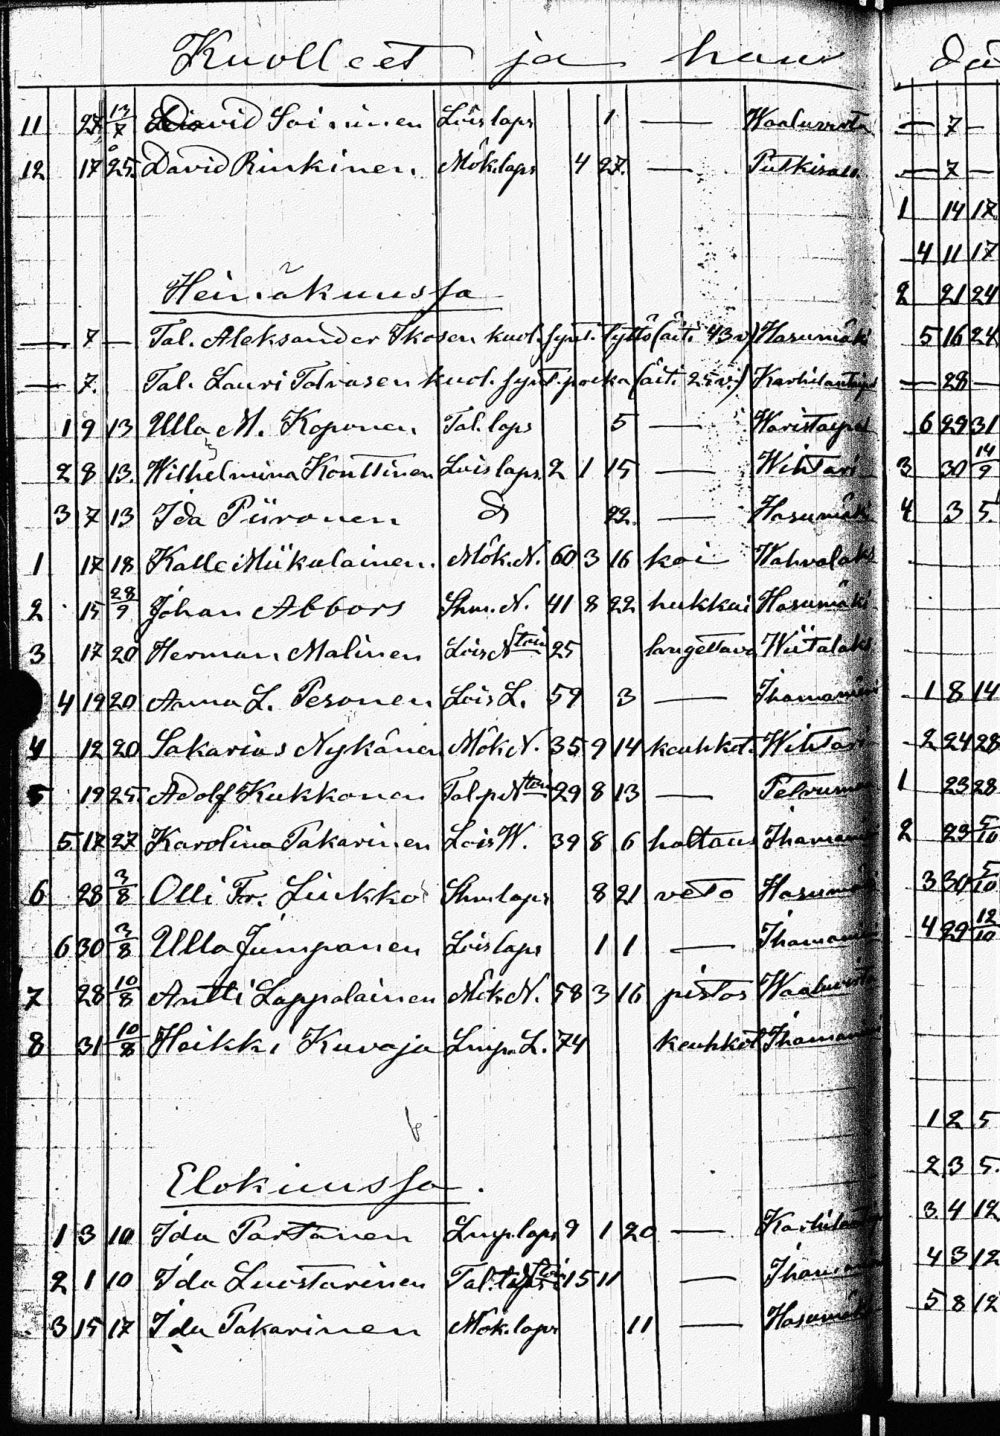 Kuolleet ja hau
11 27 13/7 David Soininen Loislaps 1 — Kaaluvirta
12 17 25. David Rinkinen Mök.laps 4 27. —
Heinäkuussa
— 7 — Tal. Aleksander Ikosen kuol. synt. tyttö (äit. 43 v) Hasumäki
— 7. Tal. Lauri Tolvasen kuol. synt. poika (äit. 25 v.)
1 9 13 Ulla M. Koponen Tal. laps 5 —
2 8 13. Wilhelmina Konttinen Loislaps. 2 1 15 — Wihtari
3 7 13 Ida Piironen 22. — Hasumäki
1 17 18 Kalle Miikulainen. Mök. N. 60 3 16 koi
2 15 28/9 Johan Abbors Shm. N. 41 8 22 hukkui Hasumäki
3 17 20 Herman Malinen Lois N toin 25 langettava Wiitalaks
4 19 20 Anna L. Pesonen Lois L. 59 3 —
4 12 20 Sakarias Nykänen Mök N. 35 9 14 keuhkot. Wihtari
5 19 25 Adolf Kukkonen Tal.p. N toin 29 8 13 —
5 17 27 Karolina Pakarinen Lois W. 39 8 6 haltaus
6 28 3/8 Olli Fr. Liukko Shm laps 8 21 veto Hasumäki
6 30 3/8 Ulla Jumpanen Loislaps 1 1 —
7 28 10/8 Antti Lappalainen Mök. N. 58 3 16 pistos
8 31 10/8 Heikki Kuvaja L. 74 keuhkot
Elokuussa.
1 3 10 Ida Partanen laps 9 1 20 —
2 1 10 Ida Luostarinen Tal. 15 11 —
3 15 17 Ida Pakarinen Mök.laps 11 — Hasumäki
— 7 —
— 7 —
1 14 17
4 11 17
2 21 24
5 16 24
— 28 —
6 29 31
3 30 14/9
4 3 5.
1 8 14
2 24 28
1 23 28
2 23 5/10
3 30 5/10
4 29 12/10
1 2 5
2 3 5.
3 4 12
4 3 12
5 8 12